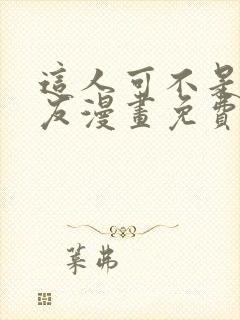 這人可不是
友漫畫免費
葉弗